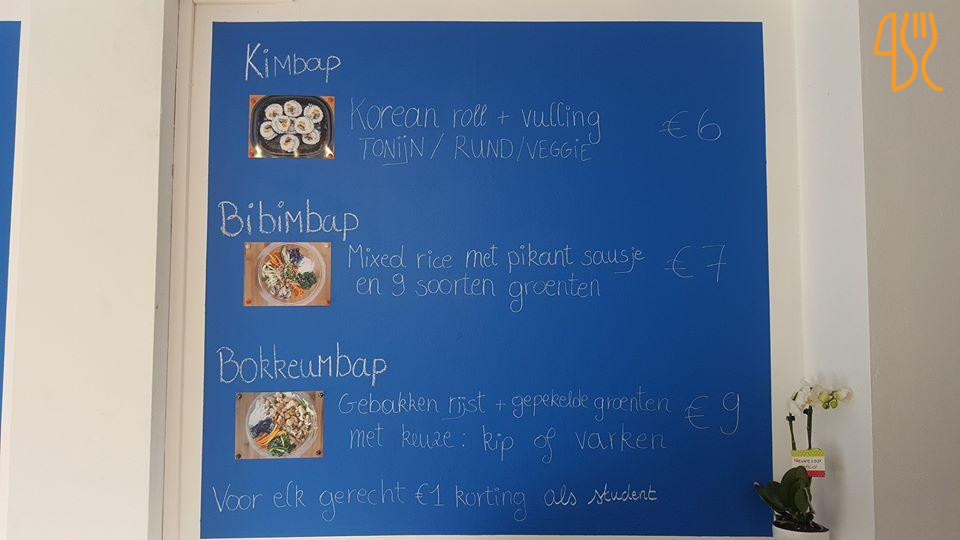 Kimbap
Korean roll + vulling
TONIJN / RUND / VEGGIE
€6
Bibimbap
Mixed rice met pikant sausje
en 9 soorten groenten
€7
Bokkeumbap
Gebakken rijst + gepekelde groenten
met keuze: kip of varken
€9
Voor elk gerecht €1 korting als student